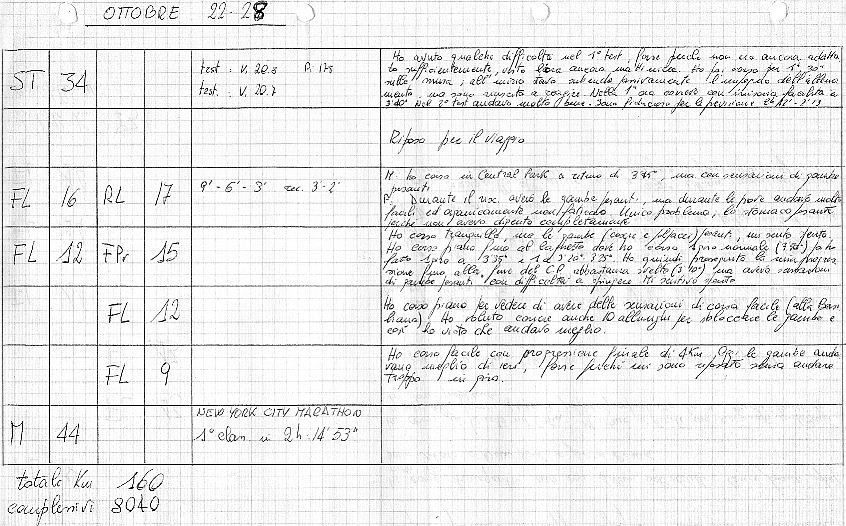 OTTOBRE 22-28
ST 34
test: V. 20.8 P. 175
test: V. 20.7
Ho avuto qualche difficoltà nel 1° test, forse perché non ero ancora adatta
to sufficientemente, visto l'ora ancora mattutina. Ho poi corso per 1h 30'
mento, ma sono riuscito a reagire. Nella 1° ora correvo con irrisoria facilità a
3'40" Nel 2° test andavo molto bene. Sono fiducioso per la previsione 2h12'-2h13
Riposo per il viaggio
FL 16 RL 17
9'-6'-3' rec. 3'-2'
M. Ho corso in Central Park a ritmo di 3'45", ma con sensazioni di gambe
pesanti
P. Durante il risc. avevo le gambe pesanti, ma durante le prove andavo molto
facile ed organicamente non faticavo. Unico problema, lo stomaco pesante
perché non avevo digerito completamente
FL 12 FPr 15
Ho corso tranquillo, ma le gambe pesanti, mi sento lento.
Ho corso piano fino al laghetto dove ho corso 1 giro normale
sione fino alla fine del CP abbastanza svelto (3'10") ma avevo sensazioni
di gambe pesanti, con difficoltà a spingere. Mi sentivo lento
FL 12
Ho corso piano per vedere di avere delle sensazioni di corsa facile (alla
Ho voluto correre anche 10 allunghi per sbloccare le gambe e
così ho visto che andavo meglio.
FL 9
Ho corso facile con progressione finale di 4Km. Oggi le gambe anda
vano meglio di ieri, forse perché mi sono riposato senza andare
troppo in giro.
M 44
NEW YORK CITY MARATHON
1° clas. in 2h:14'53"
totale Km 160
complessivi 8040